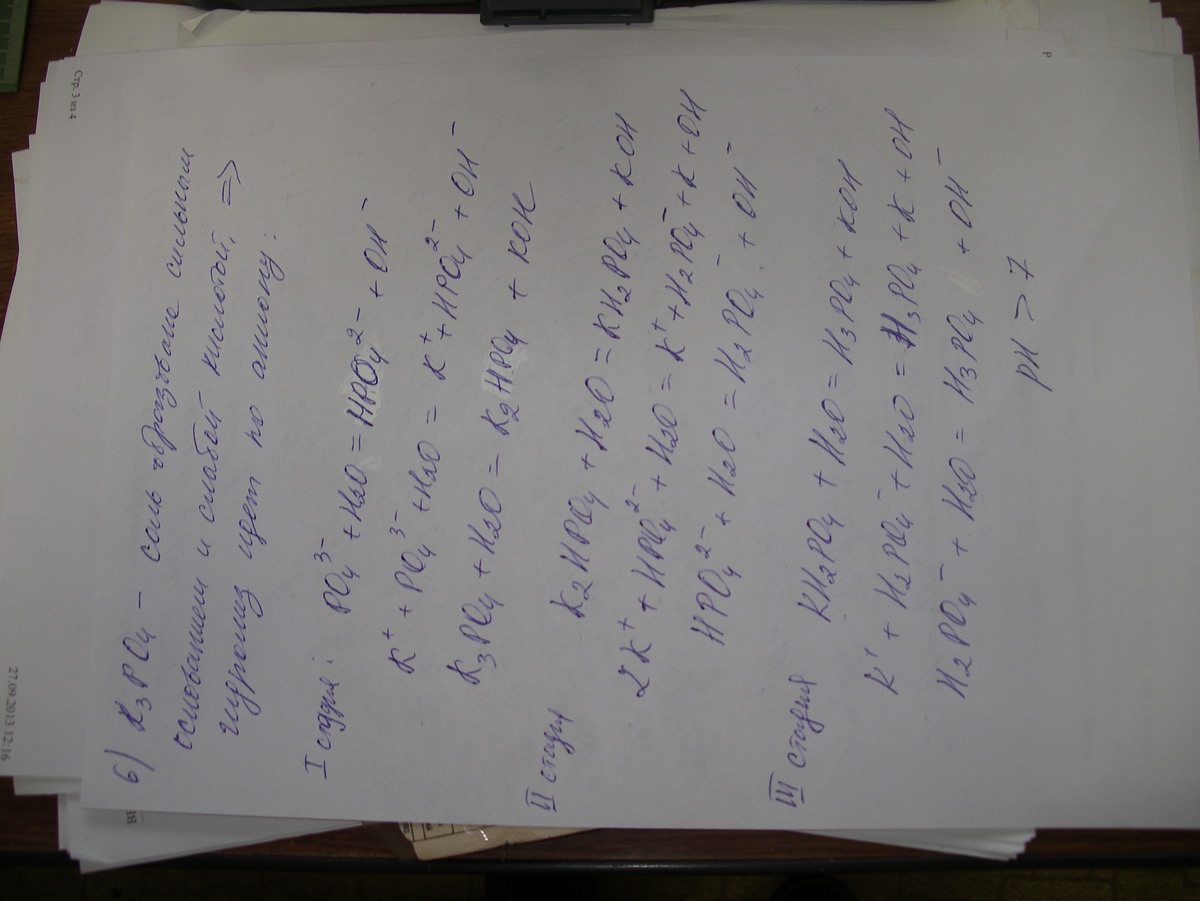 б) K₃PO₄ – соль образована сильным
основанием и слабой кислотой, =>
гидролиз идет по аниону:
I стадия: PO₄³⁻ + H₂O = HPO₄²⁻ + OH⁻
K⁺ + PO₄³⁻ + H₂O = K⁺ + HPO₄²⁻ + OH⁻
K₃PO₄ + H₂O = K₂HPO₄ + KOH
II стадия K₂HPO₄ + H₂O = KH₂PO₄ + KOH
2K⁺ + HPO₄²⁻ + H₂O = K⁺ + H₂PO₄⁻ + K + OH
HPO₄²⁻ + H₂O = H₂PO₄⁻ + OH⁻
III стадия KH₂PO₄ + H₂O = H₃PO₄ + KOH
K⁺ + H₂PO₄⁻ + H₂O = H₃PO₄ + K + OH
H₂PO₄⁻ + H₂O = H₃PO₄ + OH⁻
pH > 7
Стр. 3 из 4
27.09.2013 12:16